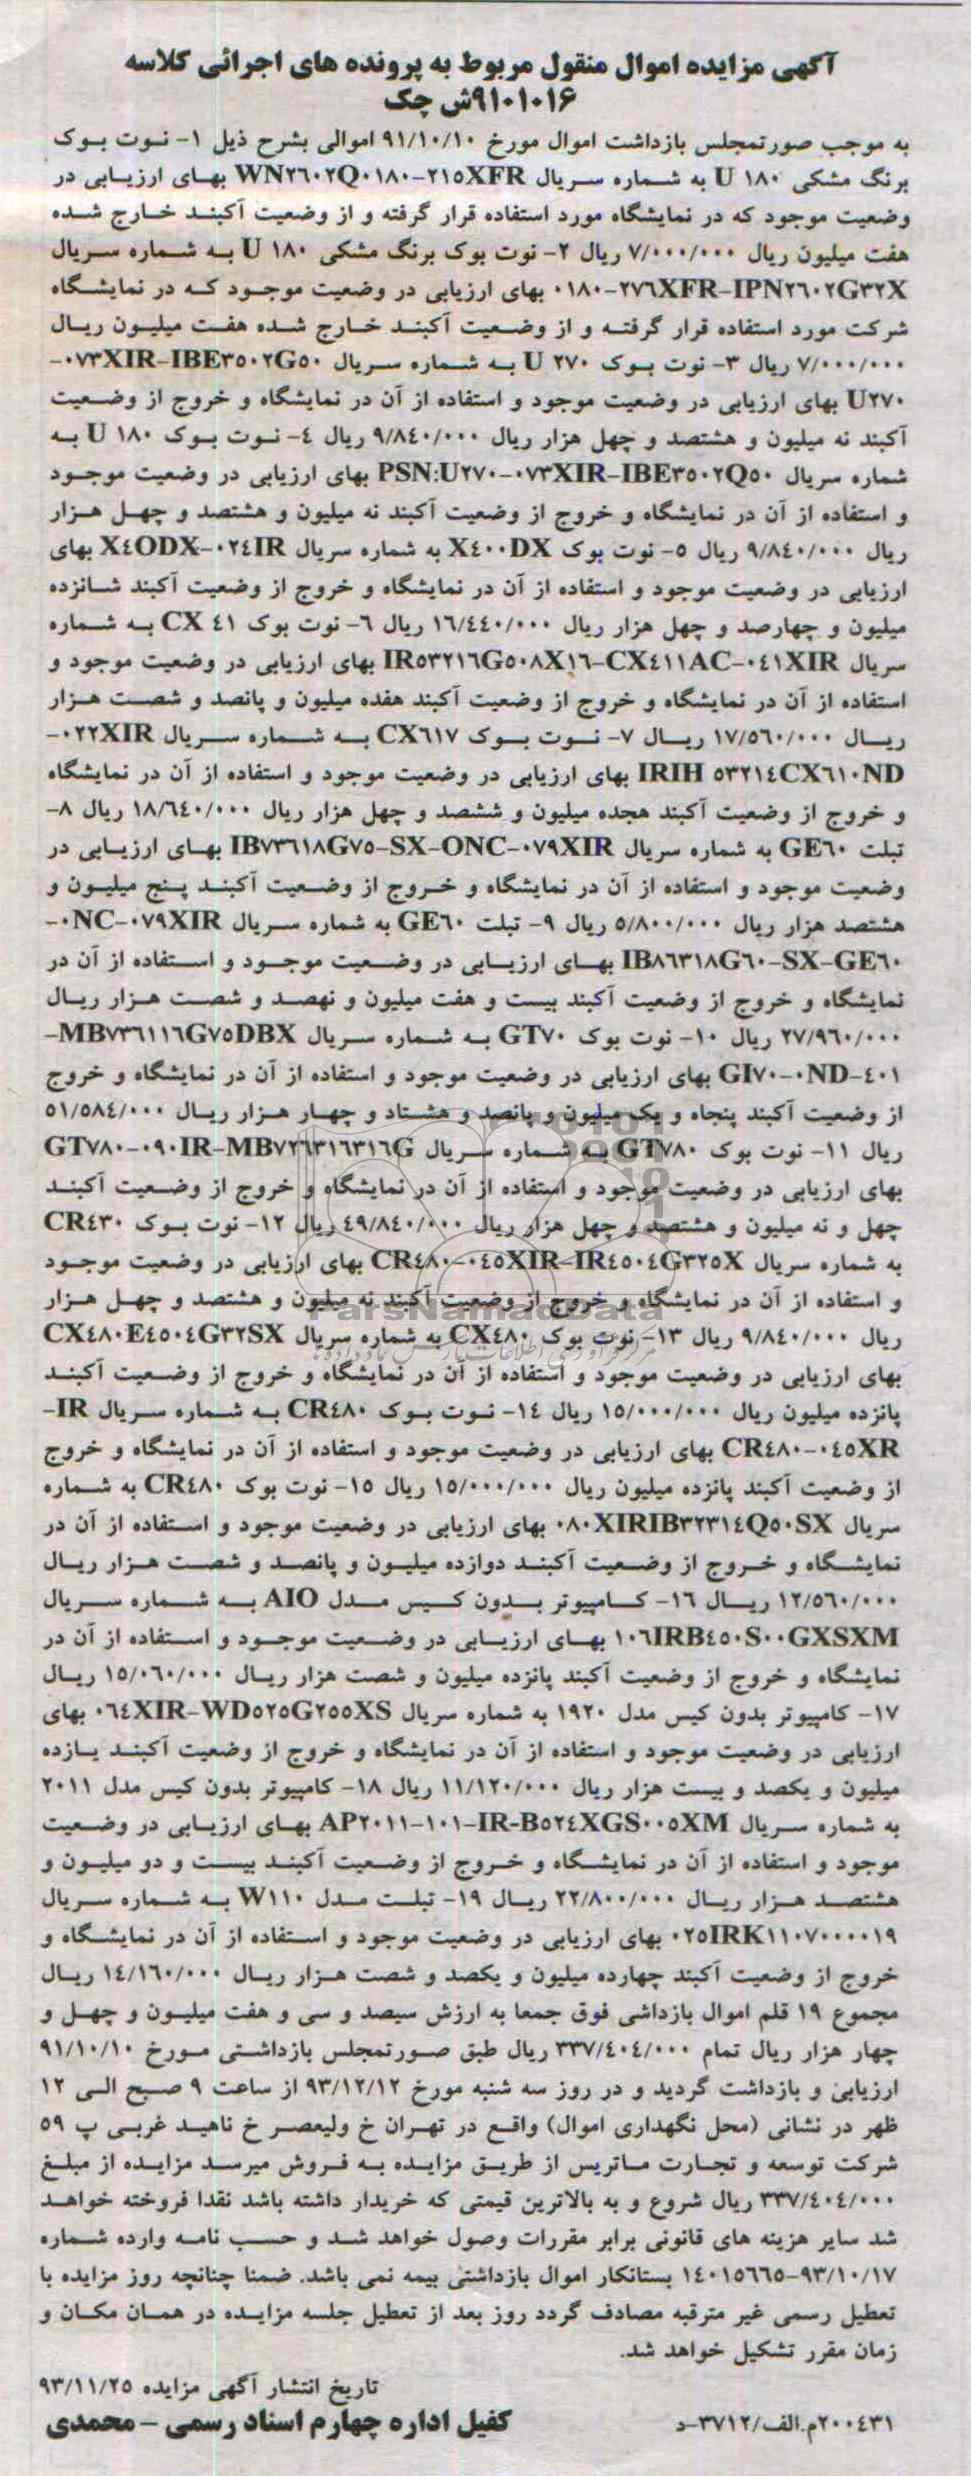 آگهی مزایده اموال منقول مربوط به پرونده های اجرائی کلاسه
۹۱۰۱۰۱۶ش چک
به موجب صورتمجلس بازداشت اموال مورخ ۹۱/۱۰/۱۰ اموالی بشرح ذیل ۱- نوت بوک
برنگ مشکی U ۱۸۰ به شماره سریال WN۲۶۰۲Q۰۱۸۰-۲۱۵XFR بهای ارزیابی در
وضعیت موجود که در نمایشگاه مورد استفاده قرار گرفته و از وضعیت آکبند خارج شده
هفت میلیون ریال ۷/۰۰۰/۰۰۰ ریال ۲- نوت بوک برنگ مشکی U ۱۸۰ به شماره سریال
۰۱۸۰-۲۷۶XFR-IPN۲۶۰۲G۳۲X بهای ارزیابی در وضعیت موجود که در نمایشگاه
شرکت مورد استفاده قرار گرفته و از وضعیت آکبند خارج شده هفت میلیون ریال
۷/۰۰۰/۰۰۰ ریال ۳- نوت بوک U ۲۷۰ به شماره سریال ۰۷۳XIR-IBE۳۵۰۲G۵۰-
U۲۷۰ بهای ارزیابی در وضعیت موجود و استفاده از آن در نمایشگاه و خروج از وضعیت
آکبند نه میلیون و هشتصد و چهل هزار ریال ۹/۸٤۰/۰۰۰ ریال ٤- نوت بوک U ۱۸۰ به
شماره سریال PSN:U۲۷۰-۰۷۳XIR-IBE۳۵۰۲Q۵۰ بهای ارزیابی در وضعیت موجود
و استفاده از آن در نمایشگاه و خروج از وضعیت آکبند نه میلیون و هشتصد و چهل هزار
ریال ۹/۸٤۰/۰۰۰ ریال ۵- نوت بوک X٤۰۰DX به شماره سریال X٤ODX-۰۲٤IR بهای
ارزیابی در وضعیت موجود و استفاده از آن در نمایشگاه و خروج از وضعیت آکبند شانزده
میلیون و چهارصد و چهل هزار ریال ۱۶/٤٤۰/۰۰۰ ریال ۶- نوت بوک CX ٤۱ به شماره
سریال IR۵۳۲۱۶G۵۰۸X۱۶-CX٤۱۱AC-۰٤۱XIR بهای ارزیابی در وضعیت موجود و
استفاده از آن در نمایشگاه و خروج از وضعیت آکبند هفده میلیون و پانصد و شصت هزار
ریال ۱۷/۵۶۰/۰۰۰ ریال ۷- نوت بوک CX۶۱۷ به شماره سریال ۰۲۲XIR-
IRIH ۵۳۲۱٤CX۶۱۰ND بهای ارزیابی در وضعیت موجود و استفاده از آن در نمایشگاه
و خروج از وضعیت آکبند هجده میلیون و ششصد و چهل هزار ریال ۱۸/۶٤۰/۰۰۰ ریال ۸-
تبلت GE۶۰ به شماره سریال IB۷۳۶۱۸G۷۵-SX-ONC-۰۷۹XIR بهای ارزیابی در
وضعیت موجود و استفاده از آن در نمایشگاه و خروج از وضعیت آکبند پنج میلیون و
هشتصد هزار ریال ۵/۸۰۰/۰۰۰ ریال ۹- تبلت GE۶۰ به شماره سریال ۰NC-۰۷۹XIR-
IB۸۶۳۱۸G۶۰-SX-GE۶۰ بهای ارزیابی در وضعیت موجود و استفاده از آن در
نمایشگاه و خروج از وضعیت آکبند بیست و هفت میلیون و نهصد و شصت هزار ریال
۲۷/۹۶۰/۰۰۰ ریال ۱۰- نوت بوک GT۷۰ به شماره سریال MB۷۳۶۱۱۶G۷۵DBX-
GI۷۰-۰ND-٤۰۱ بهای ارزیابی در وضعیت موجود و استفاده از آن در نمایشگاه و خروج
از وضعیت آکبند پنجاه و یک میلیون و پانصد و هشتاد و چهار هزار ریال ۵۱/۵۸٤/۰۰۰
ریال ۱۱- نوت بوک GT۷۸۰ به شماره سریال GT۷۸۰-۰۹۰IR-MB۷۲۶۳۱۶۳۱۶G
بهای ارزیابی در وضعیت موجود و استفاده از آن در نمایشگاه و خروج از وضعیت آکبند
چهل و نه میلیون و هشتصد و چهل هزار ریال ٤۹/۸٤۰/۰۰۰ ریال ۱۲- نوت بوک CR٤۳۰
به شماره سریال CR٤۸۰-۰٤۵XIR-IR٤۵۰٤G۳۲۵X بهای ارزیابی در وضعیت موجود
و استفاده از آن در نمایشگاه و خروج از وضعیت آکبند نه میلیون و هشتصد و چهل هزار
ParsNamadData
ریال ۹/۸٤۰/۰۰۰ ریال ۱۳- نوت بوک CX٤۸۰ به شماره سریال CX٤۸۰E٤۵۰٤G۳۲SX
بهای ارزیابی در وضعیت موجود و استفاده از آن در نمایشگاه و خروج از وضعیت آکبند
پانزده میلیون ریال ۱۵/۰۰۰/۰۰۰ ریال ۱٤- نوت بوک CR٤۸۰ به شماره سریال IR-
CR٤۸۰-۰٤۵XR بهای ارزیابی در وضعیت موجود و استفاده از آن در نمایشگاه و خروج
از وضعیت آکبند پانزده میلیون ریال ۱۵/۰۰۰/۰۰۰ ریال ۱۵- نوت بوک CR٤۸۰ به شماره
سریال ۰۸۰XIRIB۳۲۳۱٤Q۵۰SX بهای ارزیابی در وضعیت موجود و استفاده از آن در
نمایشگاه و خروج از وضعیت آکبند دوازده میلیون و پانصد و شصت هزار ریال
۱۲/۵۶۰/۰۰۰ ریال ۱۶- کامپیوتر بدون کیس مدل AIO به شماره سریال
۱۰۶IRB٤۵۰S۰۰GXSXM بهای ارزیابی در وضعیت موجود و استفاده از آن در
نمایشگاه و خروج از وضعیت آکبند پانزده میلیون و شصت هزار ریال ۱۵/۰۶۰/۰۰۰ ریال
۱۷- کامپیوتر بدون کیس مدل ۱۹۲۰ به شماره سریال ۰۶٤XIR-WD۵۲۵G۲۵۵XS بهای
ارزیابی در وضعیت موجود و استفاده از آن در نمایشگاه و خروج از وضعیت آکبند یازده
میلیون و یکصد و بیست هزار ریال ۱۱/۱۲۰/۰۰۰ ریال ۱۸- کامپیوتر بدون کیس مدل ۲۰۱۱
به شماره سریال AP۲۰۱۱-۱۰۱-IR-B۵۲٤XGS۰۰۵XM بهای ارزیابی در وضعیت
موجود و استفاده از آن در نمایشگاه و خروج از وضعیت آکبند بیست و دو میلیون و
هشتصد هزار ریال ۲۲/۸۰۰/۰۰۰ ریال ۱۹- تبلت مدل W۱۱۰ به شماره سریال
۰۲۵IRK۱۱۰۷۰۰۰۰۱۹ بهای ارزیابی در وضعیت موجود و استفاده از آن در نمایشگاه و
خروج از وضعیت آکبند چهارده میلیون و یکصد و شصت هزار ریال ۱٤/۱۶۰/۰۰۰ ریال
مجموع ۱۹ قلم اموال بازداشی فوق جمعا به ارزش سیصد و سی و هفت میلیون و چهل و
چهار هزار ریال تمام ۳۳۷/٤۰٤/۰۰۰ ریال طبق صورتمجلس بازداشتی مورخ ۹۱/۱۰/۱۰
ارزیابی و بازداشت گردید و در روز سه شنبه مورخ ۹۳/۱۲/۱۲ از ساعت ۹ صبح الی ۱۲
ظهر در نشانی (محل نگهداری اموال) واقع در تهران خ ولیعصر خ ناهید غربی پ ۵۹
شرکت توسعه و تجارت ماتریس از طریق مزایده به فروش میرسد مزایده از مبلغ
۳۳۷/٤۰٤/۰۰۰ ریال شروع و به بالاترین قیمتی که خریدار داشته باشد نقدا فروخته خواهد
شد سایر هزینه های قانونی برابر مقررات وصول خواهد شد و حسب نامه وارده شماره
۱٤۰۱۵۶۶۵-۹۳/۱۰/۱۷ بستانکار اموال بازداشتی بیمه نمی باشد. ضمنا چنانچه روز مزایده با
تعطیل رسمی غیر مترقبه مصادف گردد روز بعد از تعطیل جلسه مزایده در همان مکان و
زمان مقرر تشکیل خواهد شد.
تاریخ انتشار آگهی مزایده ۹۳/۱۱/۲۵
کفیل اداره چهارم اسناد رسمی - محمدی
۲۰۰٤۳۱م.الف/۳۷۱۲-د